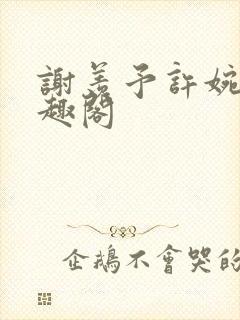 謝羨予許婉
趣閣
企鵝不會哭的